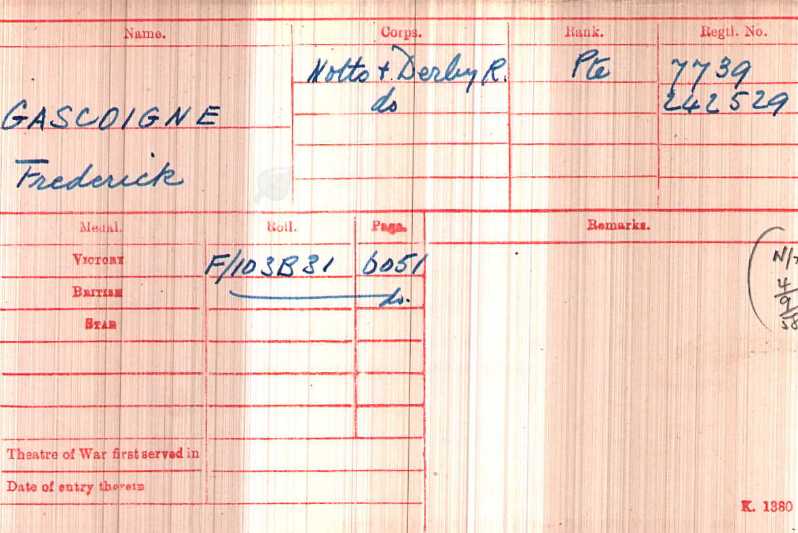 Name. Corps. Rank. Regtl. No.
Notts + Derby R. Pte 7739
do 242529
GASCOIGNE
Frederick
Medal. Roll. Page. Remarks.
VICTORY F/103B31 6051
BRITISH do.
STAR
4
9
58
Theatre of War first served in
Date of entry therein
K. 1380